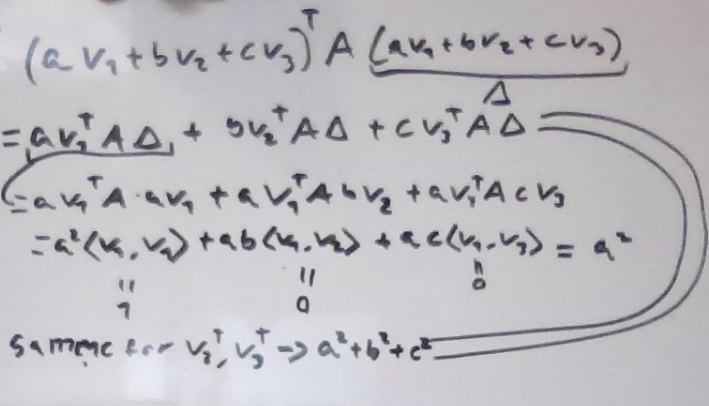 (a v₁ + b v₂ + c v₃)ᵀ A (a v₁ + b v₂ + c v₃)
Δ
= a v₁ᵀ A Δ + b v₂ᵀ A Δ + c v₃ᵀ A Δ
= a v₁ᵀ A · a v₁ + a v₁ᵀ A b v₂ + a v₁ᵀ A c v₃
= a² ⟨v₁, v₁⟩ + ab ⟨v₁, v₂⟩ + ac ⟨v₁, v₃⟩ = a²
= = =
1 0 0
same for v₂ᵀ, v₃ᵀ → a² + b² + c²